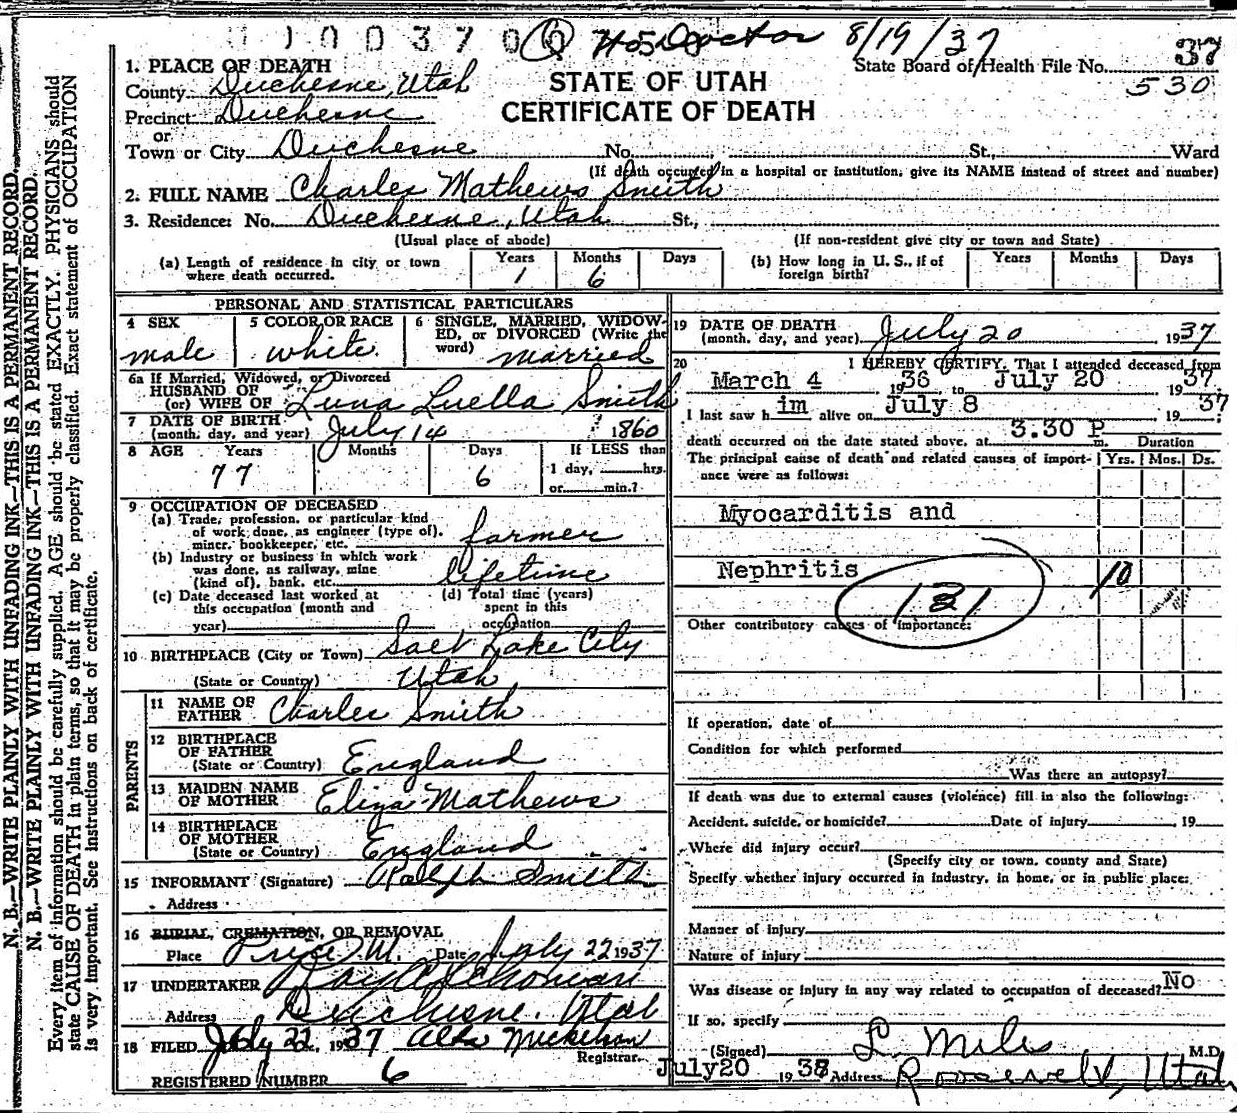 1003700 No Doctor 8/19/37
State Board of Health File No. 37
530
1. PLACE OF DEATH
STATE OF UTAH
CERTIFICATE OF DEATH
County Duchesne, Utah
Precinct Duchesne
or
Town or City Duchesne No. St., Ward
(If death occurred in a hospital or institution, give its NAME instead of street and number)
2. FULL NAME Charles Mathews Smith
3. Residence: No. Duchesne, Utah St.,
(Usual place of abode) (If non-resident give city or town and State)
(a) Length of residence in city or town where death occurred. Years 1 Months 6 Days
(b) How long in U. S., if of foreign birth? Years Months Days
PERSONAL AND STATISTICAL PARTICULARS
4 SEX male
5 COLOR OR RACE white
6 SINGLE, MARRIED, WIDOWED, or DIVORCED (Write the word) married
6a If Married, Widowed, or Divorced
HUSBAND OF
(or) WIFE OF Luna Luella Smith
7 DATE OF BIRTH
(month, day, and year) July 14 1860
8 AGE Years 77 Months Days 6 If LESS than
1 day, hrs.
or min.?
9 OCCUPATION OF DECEASED
(a) Trade, profession, or particular kind
of work done, as engineer (type of),
miner, bookkeeper, etc. farmer
(b) Industry or business in which work
was done, as railway, mine
(kind of), bank, etc. lifetime
(c) Date deceased last worked at
this occupation (month and
year)
(d) Total time (years)
spent in this
occupation
10 BIRTHPLACE (City or Town) Salt Lake City
(State or Country) Utah
PARENTS
11 NAME OF
FATHER Charles Smith
12 BIRTHPLACE
OF FATHER
(State or Country) England
13 MAIDEN NAME
OF MOTHER Eliza Mathews
14 BIRTHPLACE
OF MOTHER
(State or Country) England
15 INFORMANT (Signature) Ralph Smith
Address
16 BURIAL, CREMATION, OR REMOVAL
Place Price Date July 22 1937
17 UNDERTAKER
Address Duchesne, Utah
18 FILED July 22, 1937 Alda Mickelson
Registrar.
REGISTERED NUMBER 6
19 DATE OF DEATH
(month, day, and year) July 20 1937
20 I HEREBY CERTIFY, That I attended deceased from
March 4 1936 to July 20 1937.
I last saw him alive on July 8 1937
death occurred on the date stated above, at 3.30 P m.
Duration
The principal cause of death and related causes of importance were as follows:
Yrs. Mos. Ds.
Myocarditis and
Nephritis 10
131
Other contributory causes of importance:
If operation, date of
Condition for which performed
Was there an autopsy?
If death was due to external causes (violence) fill in also the following:
Accident, suicide, or homicide? Date of injury , 19
Where did injury occur?
(Specify city or town, county and State)
Specify whether injury occurred in industry, in home, or in public place:
Manner of injury
Nature of injury
Was disease or injury in any way related to occupation of deceased? No
If so, specify
(Signed) L. Miles M.D.
July 20 1938 Address Roosevelt, Utah
N. B.—WRITE PLAINLY WITH UNFADING INK—THIS IS A PERMANENT RECORD.
N. B.—WRITE PLAINLY WITH UNFADING INK—THIS IS A PERMANENT RECORD.
Every item of information should be carefully supplied. AGE should be stated EXACTLY. PHYSICIANS should
state CAUSE OF DEATH in plain terms, so that it may be properly classified. Exact statement of OCCUPATION
is very important. See instructions on back of certificate.